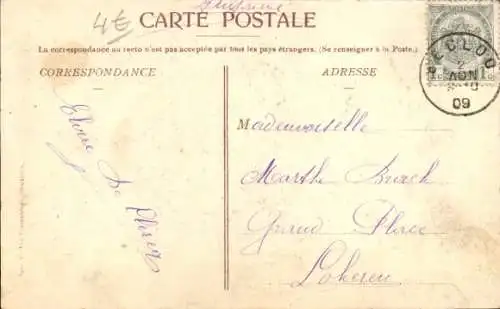 4€
Imprimé
CARTE POSTALE
La correspondance au recto n'est pas acceptée par tous les pays étrangers. (Se renseigner à la Poste.)
CORRESPONDANCE
ADRESSE
EECLOO
NOV
09
Mademoiselle
Marthe
Grand Place
Lokeren
Elvire De